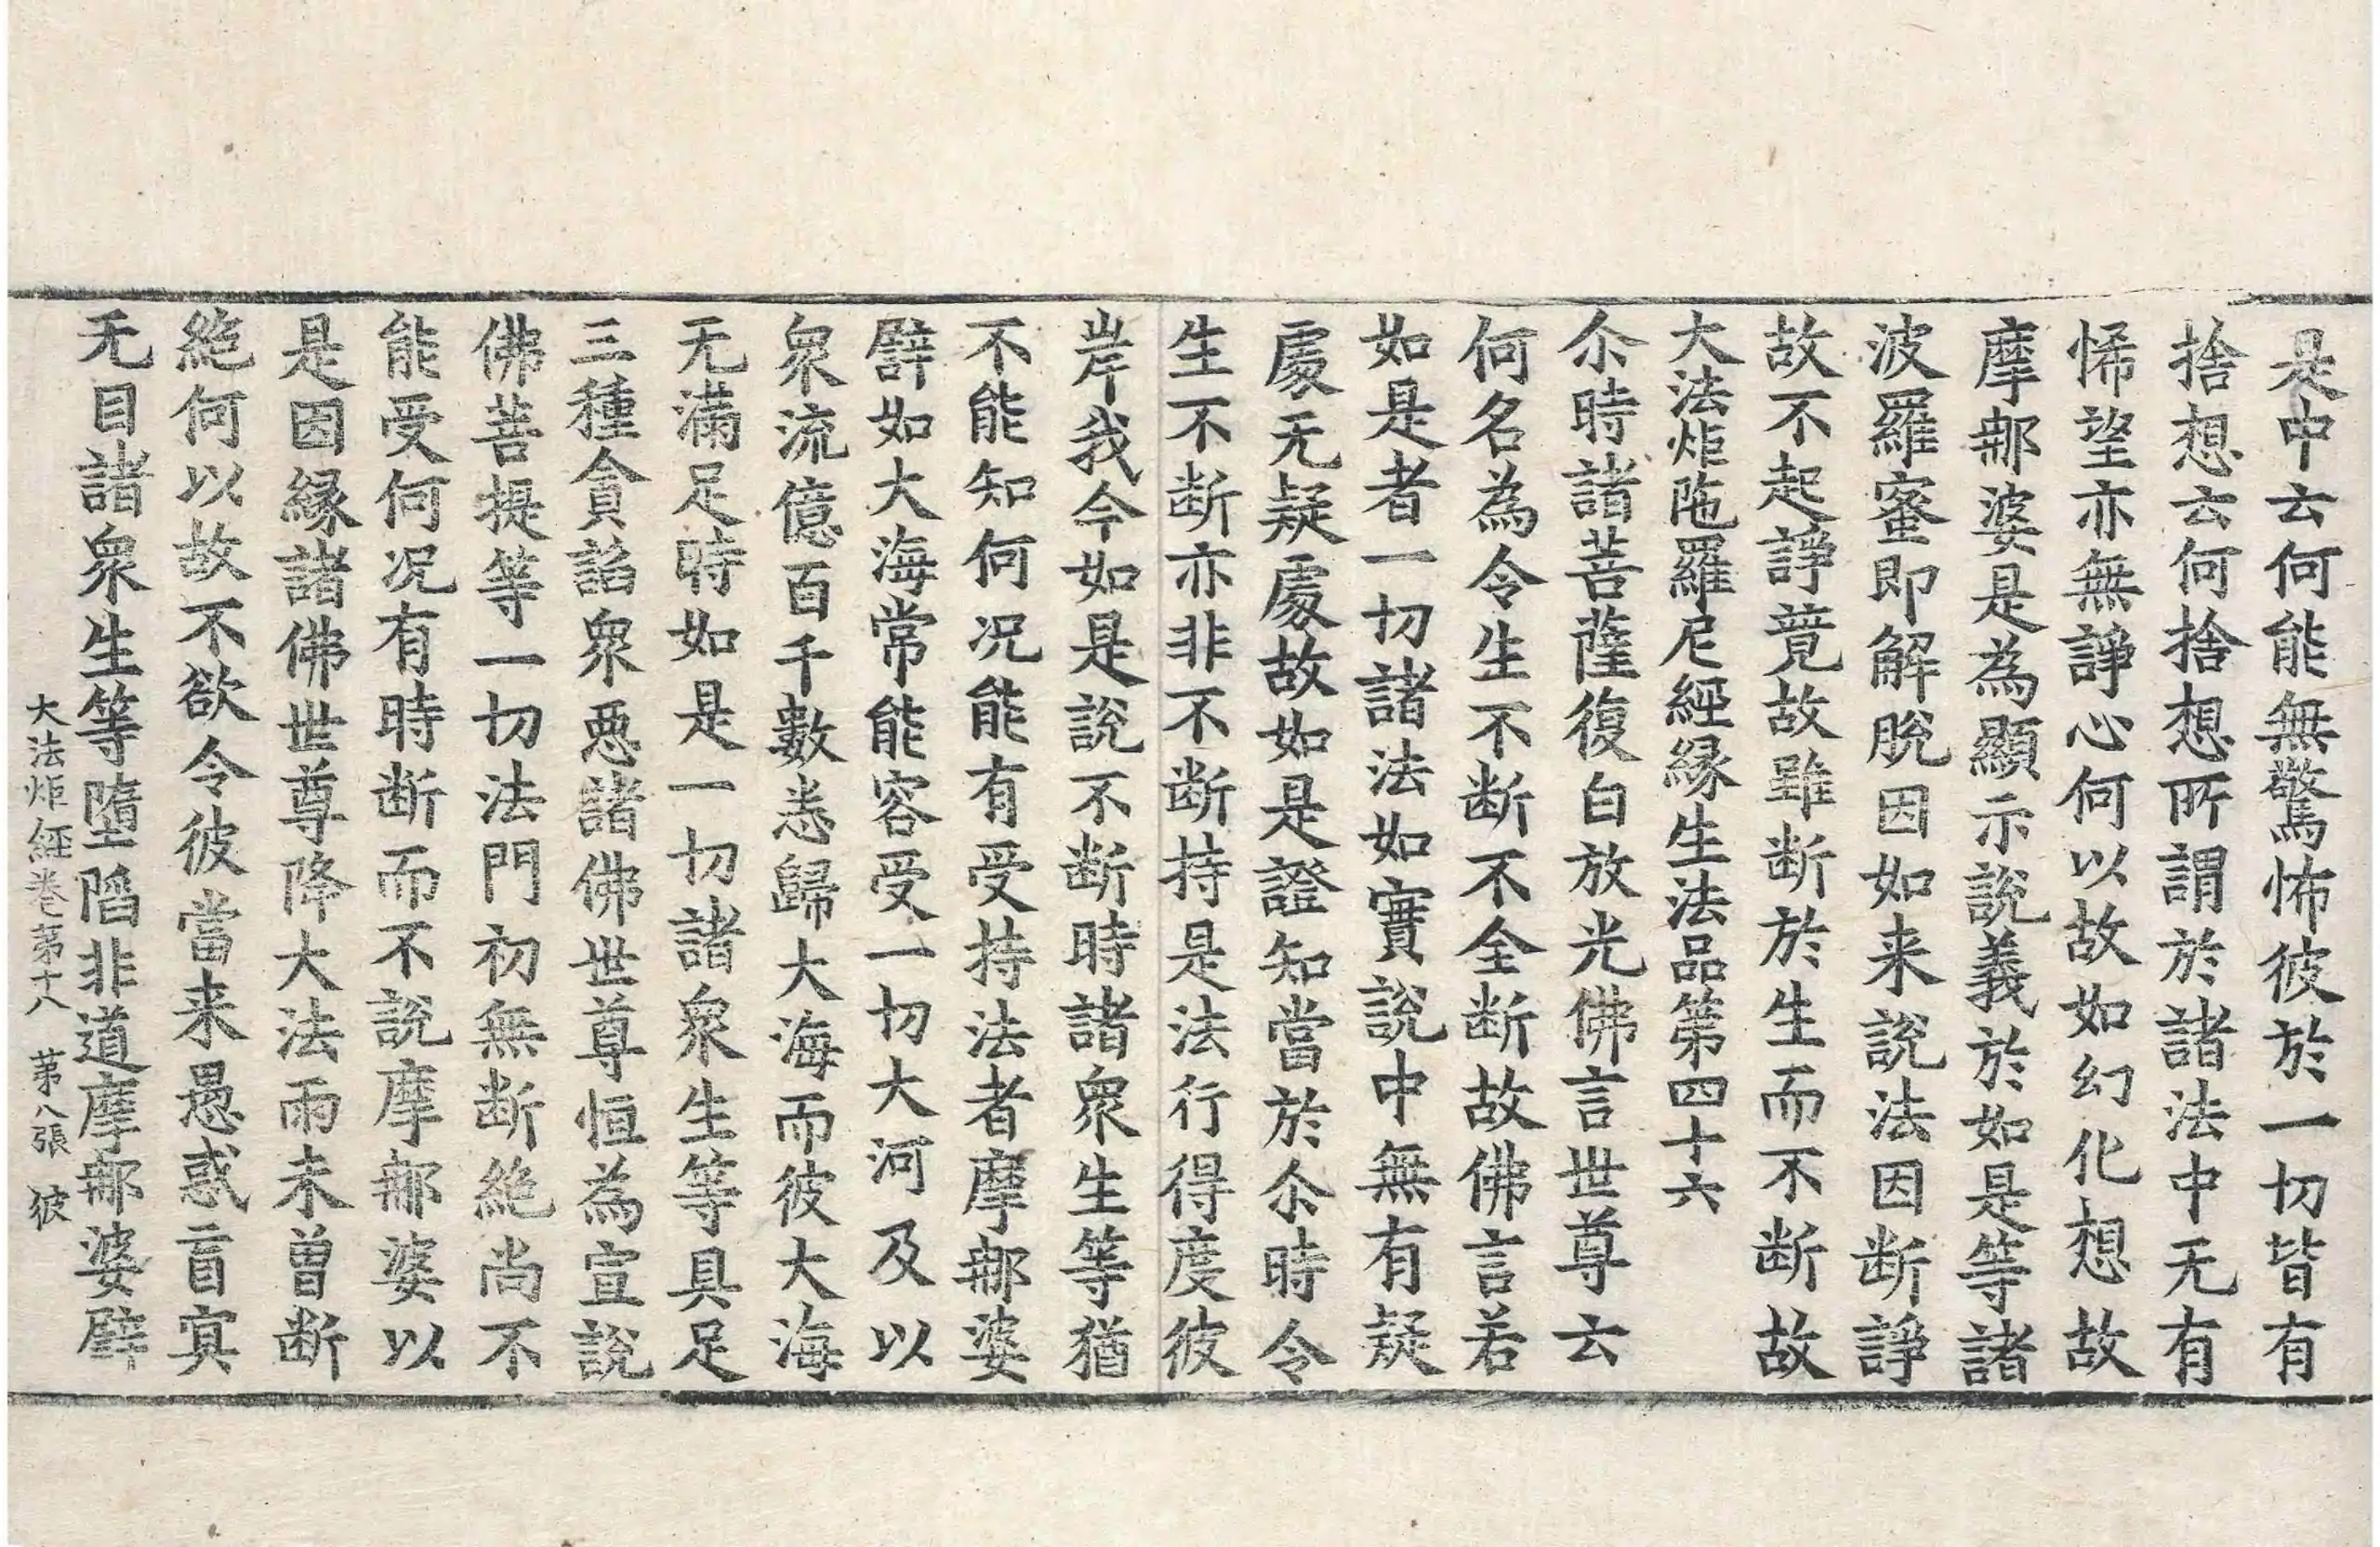 是中云何能無驚怖彼於一切皆有
捨想云何捨想所謂於諸法中无有
悕望亦無諍心何以故如幻化想故
摩郍婆是為顯示說義於如是等諸
波羅蜜即解脫因如来說法因斷諍
故不起諍竟故雖断於生而不断故
大法炬陁羅尼經緣生法品第四十六
尒時諸菩薩復白放光佛言世尊云
何名為令生不断不全断故佛言若
如是者一切諸法如實說中無有疑
處无疑處故如是證知當於尒時令
生不断亦非不断持是法行得度彼
岸我今如是說不断時諸衆生等猶
不能知何况能有受持法者摩郍婆
譬如大海常能容受一切大河及以
衆流億百千數悉歸大海而彼大海
无滿足時如是一切諸衆生等具足
三種貪謟衆惡諸佛世尊恒為宣說
佛菩提等一切法門初無断絶尚不
能受何况有時断而不說摩郍婆以
是因緣諸佛世尊降大法雨未曾断
絶何以故不欲令彼當来愚惑盲冥
无目諸衆生等墮䧟非道摩郍婆譬
大法炬經卷第十八 第八張 彼